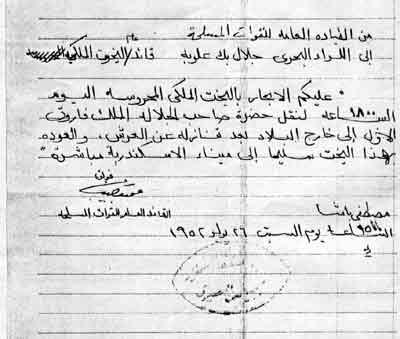 من القياده العامه للقوات المسلحة
إلى اللواء البحرى جلال بك علوبه قائد عام اليخوت الملكيه
"عليكم الابحار باليخت الملكى المحروسه اليوم
الساعه ١٨٠٠ لنقل حضرة صاحب الجلاله الملك فاروق
الاول إلى خارج البلاد بعد تنازله عن العرش، والعوده
بهذا اليخت سليما إلى ميناء الاسكندرية مباشرة"
القائد العام للقوات المسلحه
مصطفى باشا
الساعه يوم السبت ٢٦ يوليو ١٩٥٢